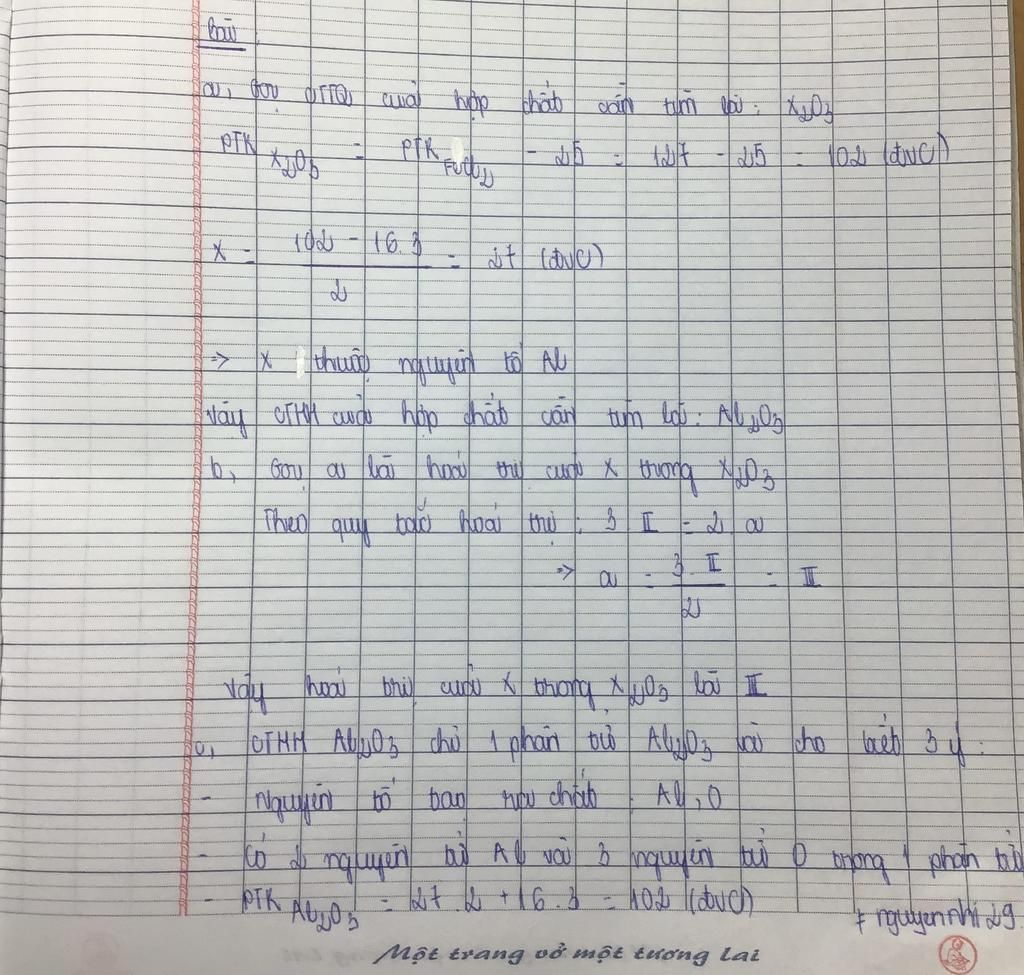 Bài
a, Gọi CTTQ của hợp chất cần tìm là: X₂O₃
PTK X₂O₃ = PTK FeCl₂ - 25 = 127 - 25 = 102 (đvC)
X = \frac{102 - 16.3}{2} = 27 (đvC)
=> X thuộc nguyên tố Al
Vậy CTHH của hợp chất cần tìm là: Al₂O₃
b, Gọi a là hoá trị của X trong X₂O₃
Theo quy tắc hoá trị: 3. II = 2. a
=> a = \frac{3. II}{2} = III
Vậy hoá trị của X trong X₂O₃ là III
c, CTHH Al₂O₃ chỉ 1 phân tử Al₂O₃ và cho biết 3 ý:
- Nguyên tố tạo nên chất: Al, O
- Có 2 nguyên tử Al và 3 nguyên tử O trong 1 phân tử
- PTK Al₂O₃ = 27.2 + 16.3 = 102 (đvC)
# nguyennhi29
Một trang vở một tương lai